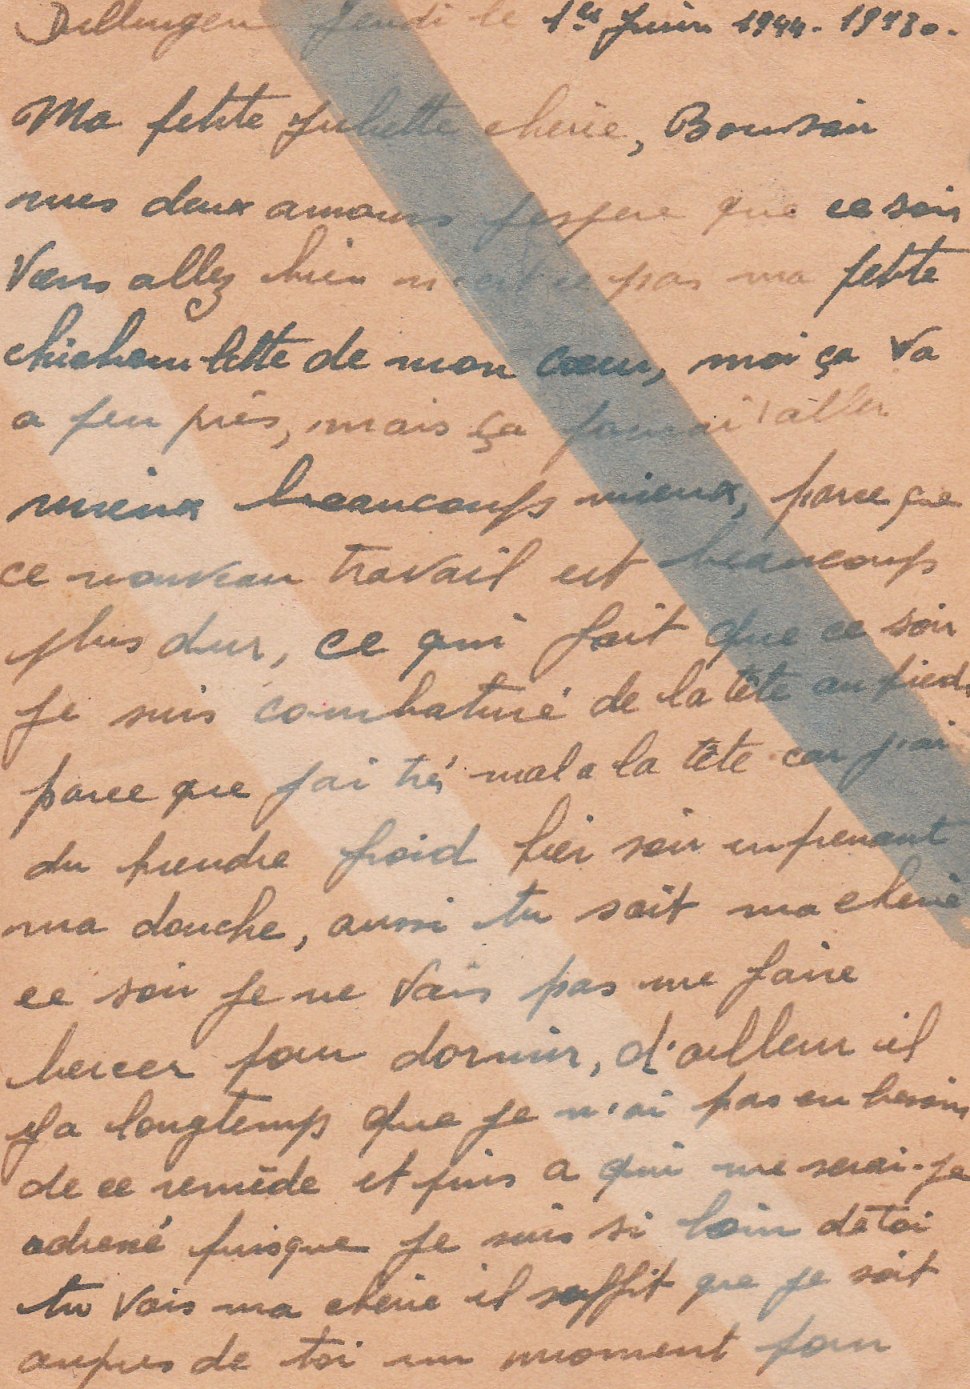 Dillingen Jeudi le 1er Juin 1944. 19H30.
Ma petite Juliette cherie, Bonsoir
mes deux amours j'espere que ce soir
Vous allez bien n'est ce pas ma petite
de mon cœur, moi ça va
a peu près, mais ça pourrai aller
mieux beaucoups mieux, parce que
ce nouveau travail est beaucoups
plus dur, ce qui fait que ce soir
je suis combaturé de la tête au pieds
parce que j'ai trés mal a la tête car j'ai
du prendre froid hier soir en prenant
ma douche, aussi tu sait ma cherie
ce soir je ne vais pas me faire
bercer pour dormir, d'ailleur il
ya longtemps que je n'ai pas eu besoin
de ce remède et puis a qui me serai-je
adressé puisque je suis si loin de toi
tu vois ma cherie il suffit que je soit
aupres de toi un moment pour